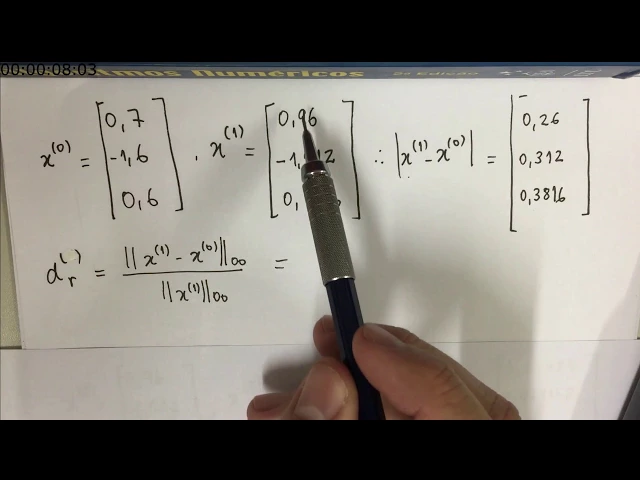 00:00:08:03
Numéricos 2ª Edição
x^(0) = [0,7 -1,6 0,6] , x^(1) = [0,96 ∴ |x^(1) - x^(0)| = [0,26 0,312 0,3816]
d_r = ||x^(1) - x^(0)||∞ / ||x^(1)||∞ =